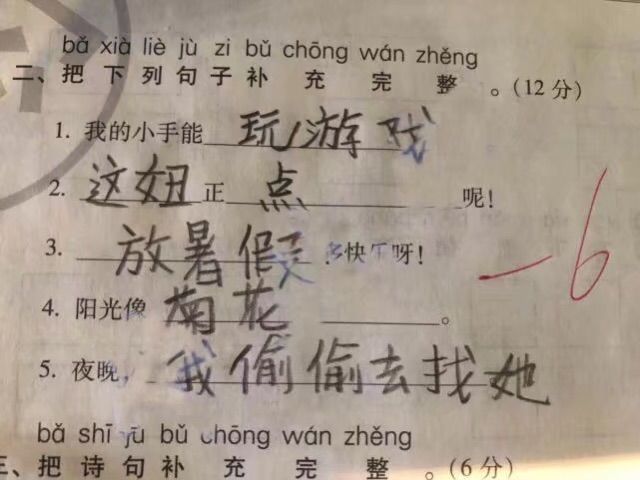 bǎ xià liè jù zi bǔ chōng wán zhěng
二、把下列句子补充完整。(12分)
1. 我的小手能玩游戏
2. 这妞正点呢!
3. 放暑假多快乐呀!
-6
4. 阳光像菊花。
5. 夜晚,我偷偷去找她
bǎ shī jù bǔ chōng wán zhěng
三、把诗句补充完整。(6分)